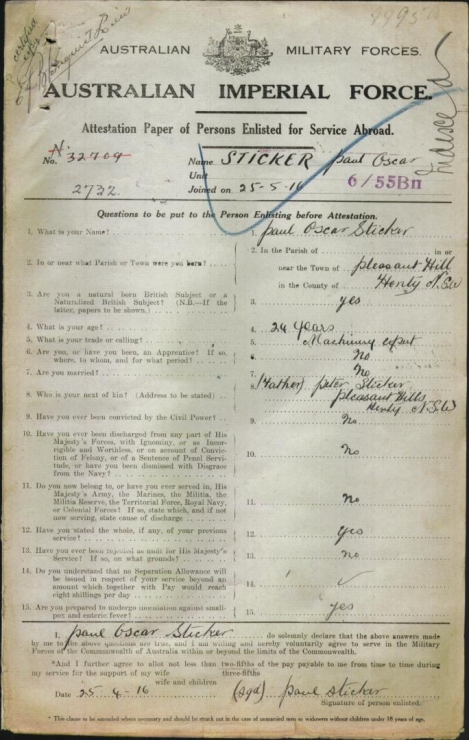 1995
certified
AUSTRALIAN MILITARY FORCES.
AUSTRALIAN IMPERIAL FORCE.
Attestation Paper of Persons Enlisted for Service Abroad.
No. 32709
2732
Name STICKER Paul Oscar
Unit 6/55Bn
Joined on 25-5-16
Indexed
Questions to be put to the Person Enlisting before Attestation.
1. What is your Name? 1. Paul Oscar Sticker
2. In or near what Parish or Town were you born? 2. In the Parish of in or
near the Town of Pleasant Hill
in the County of Henty N.S.W
3. Are you a natural born British Subject or a
Naturalized British Subject? (N.B.—If the
latter, papers to be shown.) 3. yes
4. What is your age? 4. 24 years
5. What is your trade or calling? 5. Machinery expert
6. Are you, or have you been, an Apprentice? If so,
where, to whom, and for what period? 6. No
7. Are you married? 7. No
8. Who is your next of kin? (Address to be stated) 8. (Father) Peter Sticker
Pleasant Hills
Henty N.S.W
9. Have you ever been convicted by the Civil Power? 9. No
10. Have you ever been discharged from any part of His
Majesty's Forces, with Ignominy, or as Incor-
rigible and Worthless, or on account of Convic-
tion of Felony, or of a Sentence of Penal Servi-
tude, or have you been dismissed with Disgrace
from the Navy? 10. No
11. Do you now belong to, or have you ever served in, His
Majesty's Army, the Marines, the Militia, the
Militia Reserve, the Territorial Force, Royal Navy,
or Colonial Forces? If so, state which, and if not
now serving, state cause of discharge 11. No
12. Have you stated the whole, if any, of your previous
service? 12. Yes
13. Have you ever been rejected as unfit for His Majesty's
Service? If so, on what grounds? 13. No
14. Do you understand that no Separation Allowance will
be issued in respect of your service beyond an
amount which together with Pay would reach
eight shillings per day 14. ✓
15. Are you prepared to undergo inoculation against small-
pox and enteric fever? 15. yes
I, Paul Oscar Sticker do solemnly declare that the above answers made
by me to the above questions are true, and I am willing and hereby voluntarily agree to serve in the Military
Forces of the Commonwealth of Australia within or beyond the limits of the Commonwealth.
*And I further agree to allot not less than two-fifths of the pay payable to me from time to time during
three-fifths
my service for the support of my wife
wife and children
Date 25-4-16 (Sgd) Paul Sticker
Signature of person enlisted.
* This clause to be amended where necessary and should be struck out in the case of unmarried men or widowers without children under 18 years of age.